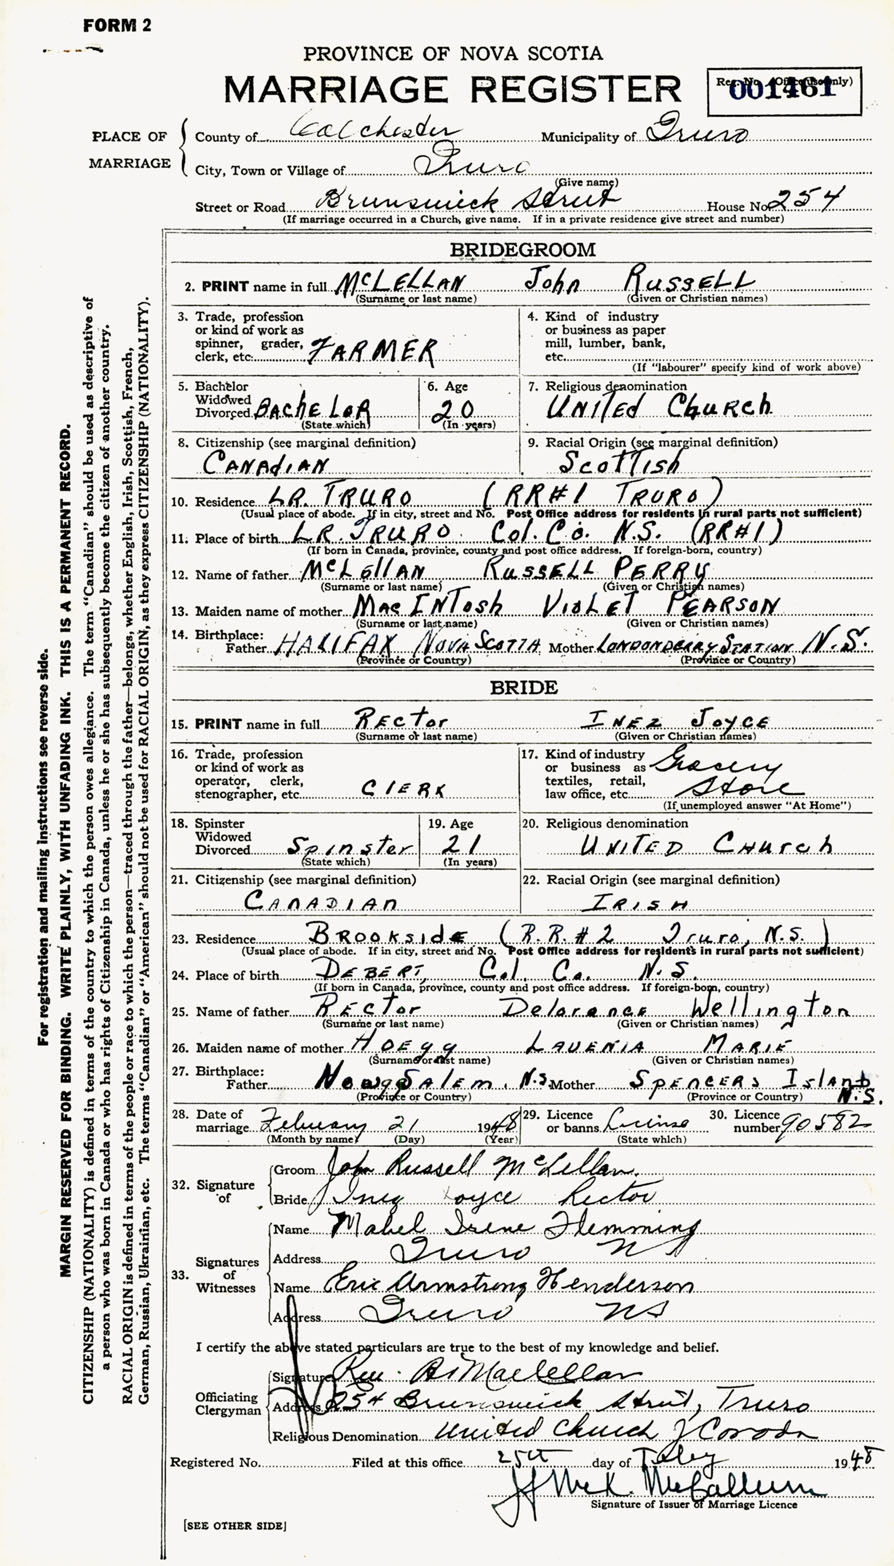 FORM 2
PROVINCE OF NOVA SCOTIA
MARRIAGE REGISTER
Reg. No. (Office use only)
001461
PLACE OF MARRIAGE
County of Colchester Municipality of Truro
City, Town or Village of Truro
(Give name)
Street or Road Brunswick Street House No. 254
(If marriage occurred in a Church, give name. If in a private residence give street and number)
BRIDEGROOM
2. PRINT name in full McLELLAN John RUSSELL
(Surname or last name) (Given or Christian names)
3. Trade, profession or kind of work as spinner, grader, clerk, etc. FARMER
4. Kind of industry or business as paper mill, lumber, bank, etc.
(If "labourer" specify kind of work above)
5. Bachelor Widowed Divorced BACHELOR
(State which)
6. Age 20
(In years)
7. Religious denomination UNITED CHURCH
8. Citizenship (see marginal definition) CANADIAN
9. Racial Origin (see marginal definition) Scottish
10. Residence LR. TRURO (RR#1 TRURO)
(Usual place of abode. If in city, street and No. Post Office address for residents in rural parts not sufficient)
11. Place of birth L.R. TRURO Col. Co. N.S. (RR#1)
(If born in Canada, province, county and post office address. If foreign-born, country)
12. Name of father McLellan RUSSELL PERRY
(Surname or last name) (Given or Christian names)
13. Maiden name of mother MacINTosh VIOLET PEARSON
(Surname or last name) (Given or Christian names)
14. Birthplace: Father HALIFAX NOVA SCOTIA Mother LONDONDERRY STATION N.S.
(Province or Country) (Province or Country)
BRIDE
15. PRINT name in full RECTOR INEZ JOYCE
(Surname or last name) (Given or Christian names)
16. Trade, profession or kind of work as operator, clerk, stenographer, etc. CLERK
17. Kind of industry or business as textiles, retail, law office, etc. Grocery Store
(If unemployed answer "At Home")
18. Spinster Widowed Divorced Spinster
(State which)
19. Age 21
(In years)
20. Religious denomination UNITED CHURCH
21. Citizenship (see marginal definition) CANADIAN
22. Racial Origin (see marginal definition) IRISH
23. Residence BROOKSIDE (R.R.#2 Truro, N.S.)
(Usual place of abode. If in city, street and No. Post Office address for residents in rural parts not sufficient)
24. Place of birth DEBERT Col. Co. N.S.
(If born in Canada, province, county and post office address. If foreign-born, country)
25. Name of father RECTOR Delorance Wellington
(Surname or last name) (Given or Christian names)
26. Maiden name of mother HOEGG LAVENIA MARIE
(Surname or last name) (Given or Christian names)
27. Birthplace: Father SALEM, N.S. Mother SPENCERS ISLAND N.S.
(Province or Country) (Province or Country)
28. Date of marriage February 21 1948
(Month by name) (Day) (Year)
29. Licence or banns License
(State which)
30. Licence number 90582
32. Signature of
Groom John Russell McLellan
Bride Inez Joyce Rector
33. Signatures of Witnesses
Name Mabel Irene Flemming
Address Truro NS
Name Eric Armstrong Henderson
Address Truro NS
I certify the above stated particulars are true to the best of my knowledge and belief.
Officiating Clergyman
Signature Rev. Maclellan
Address 254 Brunswick Street, Truro
Religious Denomination United Church of Canada
Registered No. Filed at this office 25th day of Feby 1948
McCallum
Signature of Issuer of Marriage Licence
[SEE OTHER SIDE]
For registration and mailing instructions see reverse side.
MARGIN RESERVED FOR BINDING. WRITE PLAINLY, WITH UNFADING INK. THIS IS A PERMANENT RECORD.
CITIZENSHIP (NATIONALITY) is defined in terms of the country to which the person owes allegiance. The term "Canadian" should be used as descriptive of
a person who was born in Canada or who has rights of Citizenship in Canada, unless he or she has subsequently become the citizen of another country.
RACIAL ORIGIN is defined in terms of the people or race to which the person—traced through the father—belongs, whether English, Irish, Scottish, French,
German, Russian, Ukrainian, etc. The terms "Canadian" or "American" should not be used for RACIAL ORIGIN, as they express CITIZENSHIP (NATIONALITY).